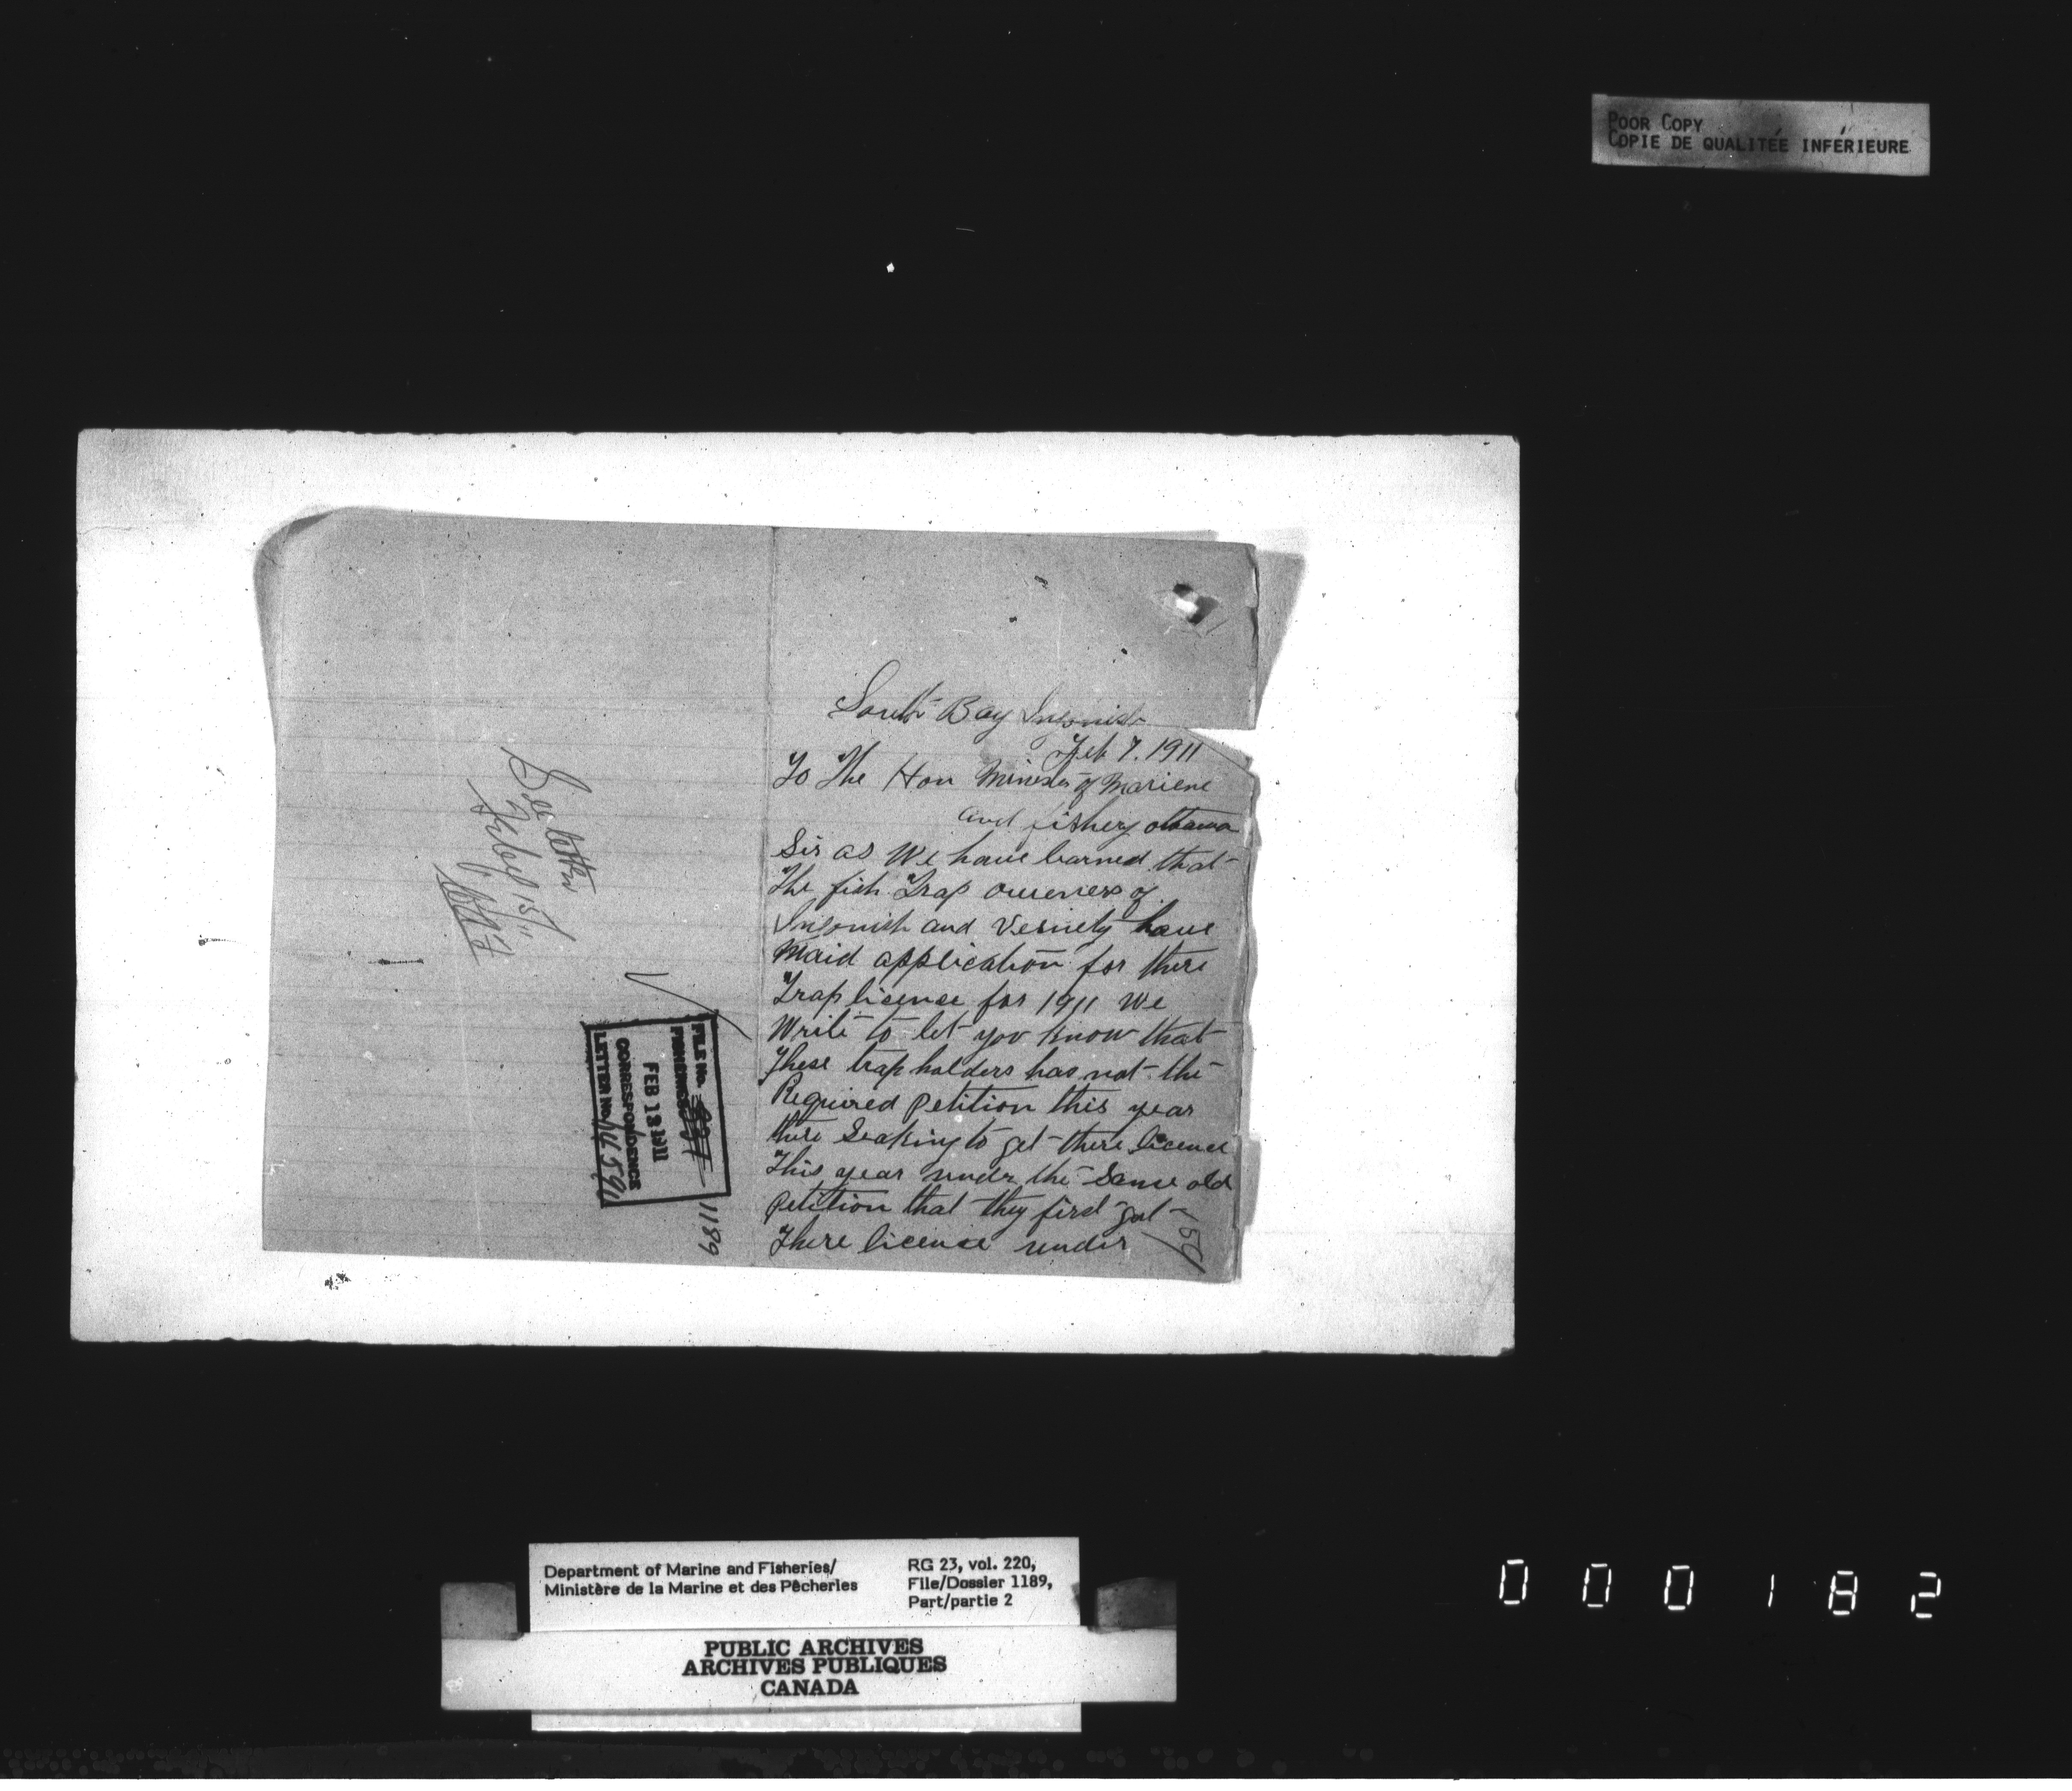 POOR COPY
COPIE DE QUALITÉE INFÉRIEURE
South Bay Ingonish
Feb 7. 1911
To The Hon Minister of Mariene
and fishery ottawa
Sir as We have learned that
The fish Trap oweners of
Ingonish and Vesinety have
Maid application for there
Trap lisense for 1911 We
Write to let you know that
These trap holders has not the
Required petition this year
there Seaking to get there licence
This year under the Same old
petition that they first got
There license under
See letter
Feby 15/11
FILE No.
FISHERIES
FEB 13 1911
CORRESPONDENCE
LETTER No.
1189
Department of Marine and Fisheries/
Ministère de la Marine et des Pêcheries
RG 23, vol. 220,
File/Dossier 1189,
Part/partie 2
PUBLIC ARCHIVES
ARCHIVES PUBLIQUES
CANADA
000182